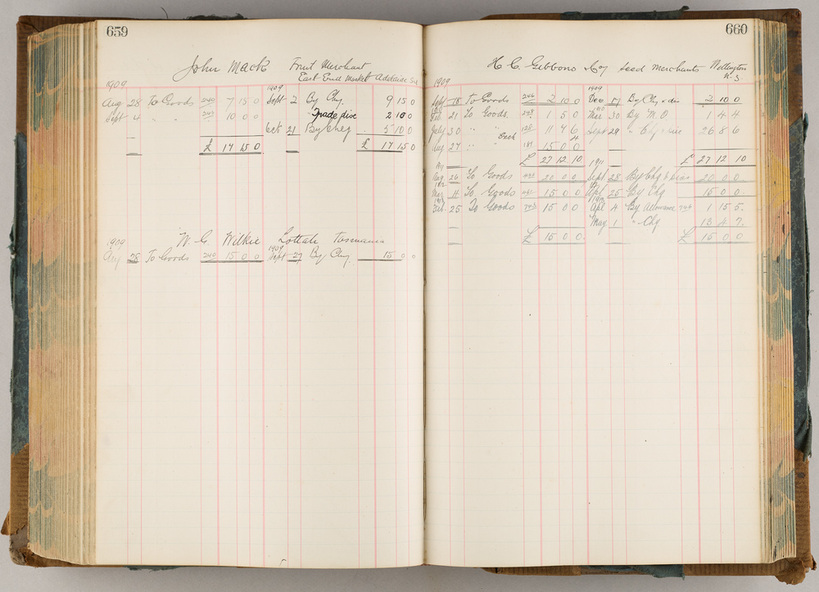 659
John Mack Fruit Merchant
East End Market Adelaide
1909 1909
Aug 28 To Goods 240 7 15 0 Sept 2 By Chq 9 15 0
Sept 4 " " 243 10 0 0 Trade disc 2 10 0
Oct 21 By Chq 5 10 0
£ 17 15 0 £ 17 15 0
1909 W. G. Wilkie Lottah Tasmania
1909
Aug 25 To Goods 240 15 0 0 Sept 27 By Chq 15 0 0
660
H. C. Gibbons & Coy Seed Merchants Wellington
N.Z.
1909 1909
Sept 18 To Goods 2 10 0 Dec 17 By Chq 2 10 0
Feb 21 To Goods 1 5 0 Mar 30 By M.O 1 4 4
July 30 " " 11 7 6 Sept 29 " Chq 26 8 6
Aug 27 " " 15 0 0
£ 27 12 10 1911 £ 27 12 10
To Goods 20 0 0 Sept 28 By Chq 20 0 0
To Goods 15 0 0 25 By Chq 15 0 0
25 To Goods 15 0 0 By Allowance 1 15 5
May 1 " Chq 13 4 7
£ 15 0 0 £ 15 0 0